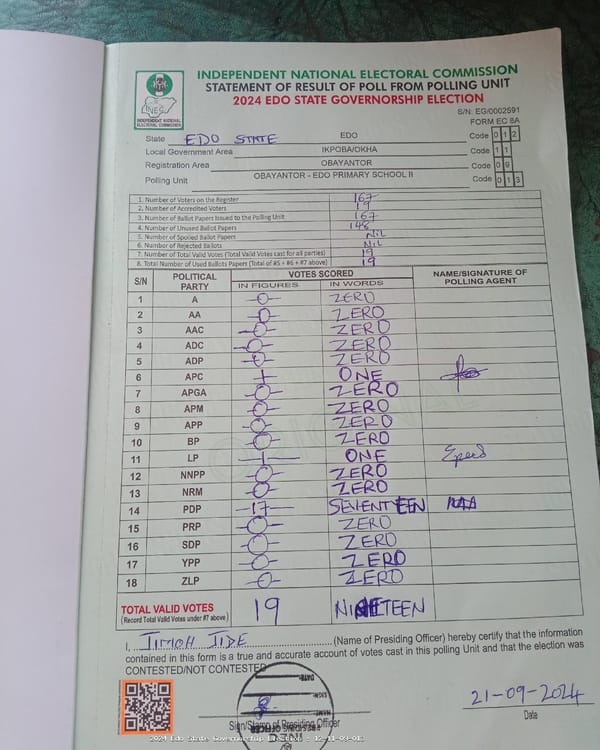 INDEPENDENT NATIONAL ELECTORAL COMMISSION
STATEMENT OF RESULT OF POLL FROM POLLING UNIT
2024 EDO STATE GOVERNORSHIP ELECTION
INEC
INDEPENDENT NATIONAL ELECTORAL COMMISSION
S/N: EG/0002591
FORM EC 8A
State EDO STATE EDO Code 0 1 2
Local Government Area IKPOBA/OKHA Code 1 1
Registration Area OBAYANTOR Code 0 9
Polling Unit OBAYANTOR - EDO PRIMARY SCHOOL II Code 0 1 3
1. Number of Voters on the Register 167
2. Number of Accredited Voters 19
3. Number of Ballot Papers Issued to the Polling Unit 167
4. Number of Unused Ballot Papers 148
5. Number of Spoiled Ballot Papers NIL
6. Number of Rejected Ballots NIL
7. Number of Total Valid Votes (Total Valid Votes cast for all parties) 19
8. Total Number of Used Ballots Papers (Total of #5 + #6 + #7 above) 19
S/N POLITICAL PARTY VOTES SCORED NAME/SIGNATURE OF POLLING AGENT
IN FIGURES IN WORDS
1 A -0- ZERO
2 AA -0- ZERO
3 AAC -0- ZERO
4 ADC -0- ZERO
5 ADP -0- ZERO
6 APC 1 ONE
7 APGA -0- ZERO
8 APM -0- ZERO
9 APP -0- ZERO
10 BP -0- ZERO
11 LP -1- ONE
12 NNPP -0- ZERO
13 NRM -0- ZERO
14 PDP -17- SEVENTEEN
15 PRP -0- ZERO
16 SDP -0- ZERO
17 YPP -0- ZERO
18 ZLP -0- ZERO
TOTAL VALID VOTES 19 NINETEEN
(Record Total Valid Votes under #7 above)
I, TIMOH JIDE (Name of Presiding Officer) hereby certify that the information
contained in this form is a true and accurate account of votes cast in this polling Unit and that the election was
CONTESTED/NOT CONTESTED
21-09-2024
Sign/Stamp of Presiding Officer Date
DATE
SIGN
NAME
PRESIDING OFFICER